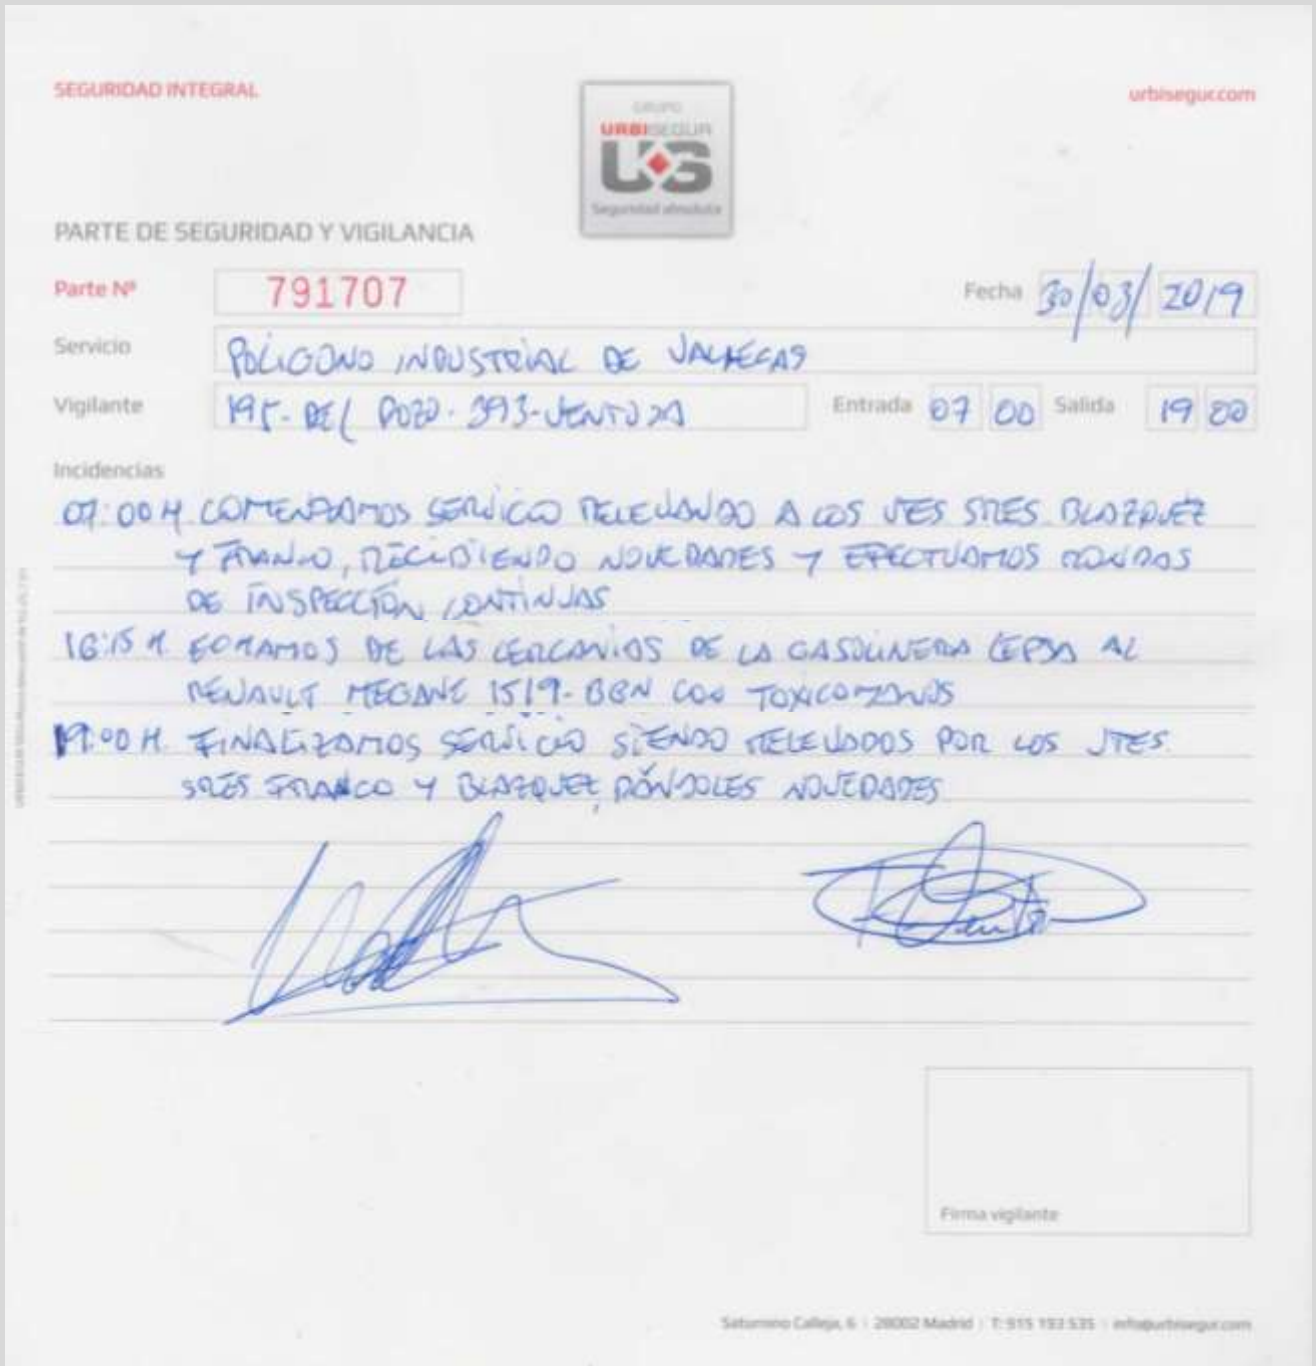 SEGURIDAD INTEGRAL
urbisegur.com
GRUPO
URBISEGUR
UGS
Seguridad absoluta
PARTE DE SEGURIDAD Y VIGILANCIA
Parte Nº 791707 Fecha 30/03/2019
Servicio POLIGONO INDUSTRIAL DE VALLECAS
Vigilante 195- DEL POZO - 393-VENTOSA Entrada 07 00 Salida 19 00
Incidencias
07:00 H. COMENZAMOS SERVICIO RELEVANDO A LOS VTES SRES BLAZQUEZ
Y FRANCO, RECIBIENDO NOVEDADES Y EFECTUAMOS RONDAS
DE INSPECCIÓN CONTINUAS
16:15 H. ECHAMOS DE LAS CERCANIAS DE LA GASOLINERA CEPSA AL
RENAULT MEGANE 1519-BBN CON TOXICOMANOS
19:00 H. FINALIZAMOS SERVICIO SIENDO RELEVADOS POR LOS VTES.
SRES FRANCO Y BLAZQUEZ, DÁNDOLES NOVEDADES
Firma vigilante
Saturnino Calleja, 6 | 28002 Madrid | T: 915 193 535 | info@urbisegur.com